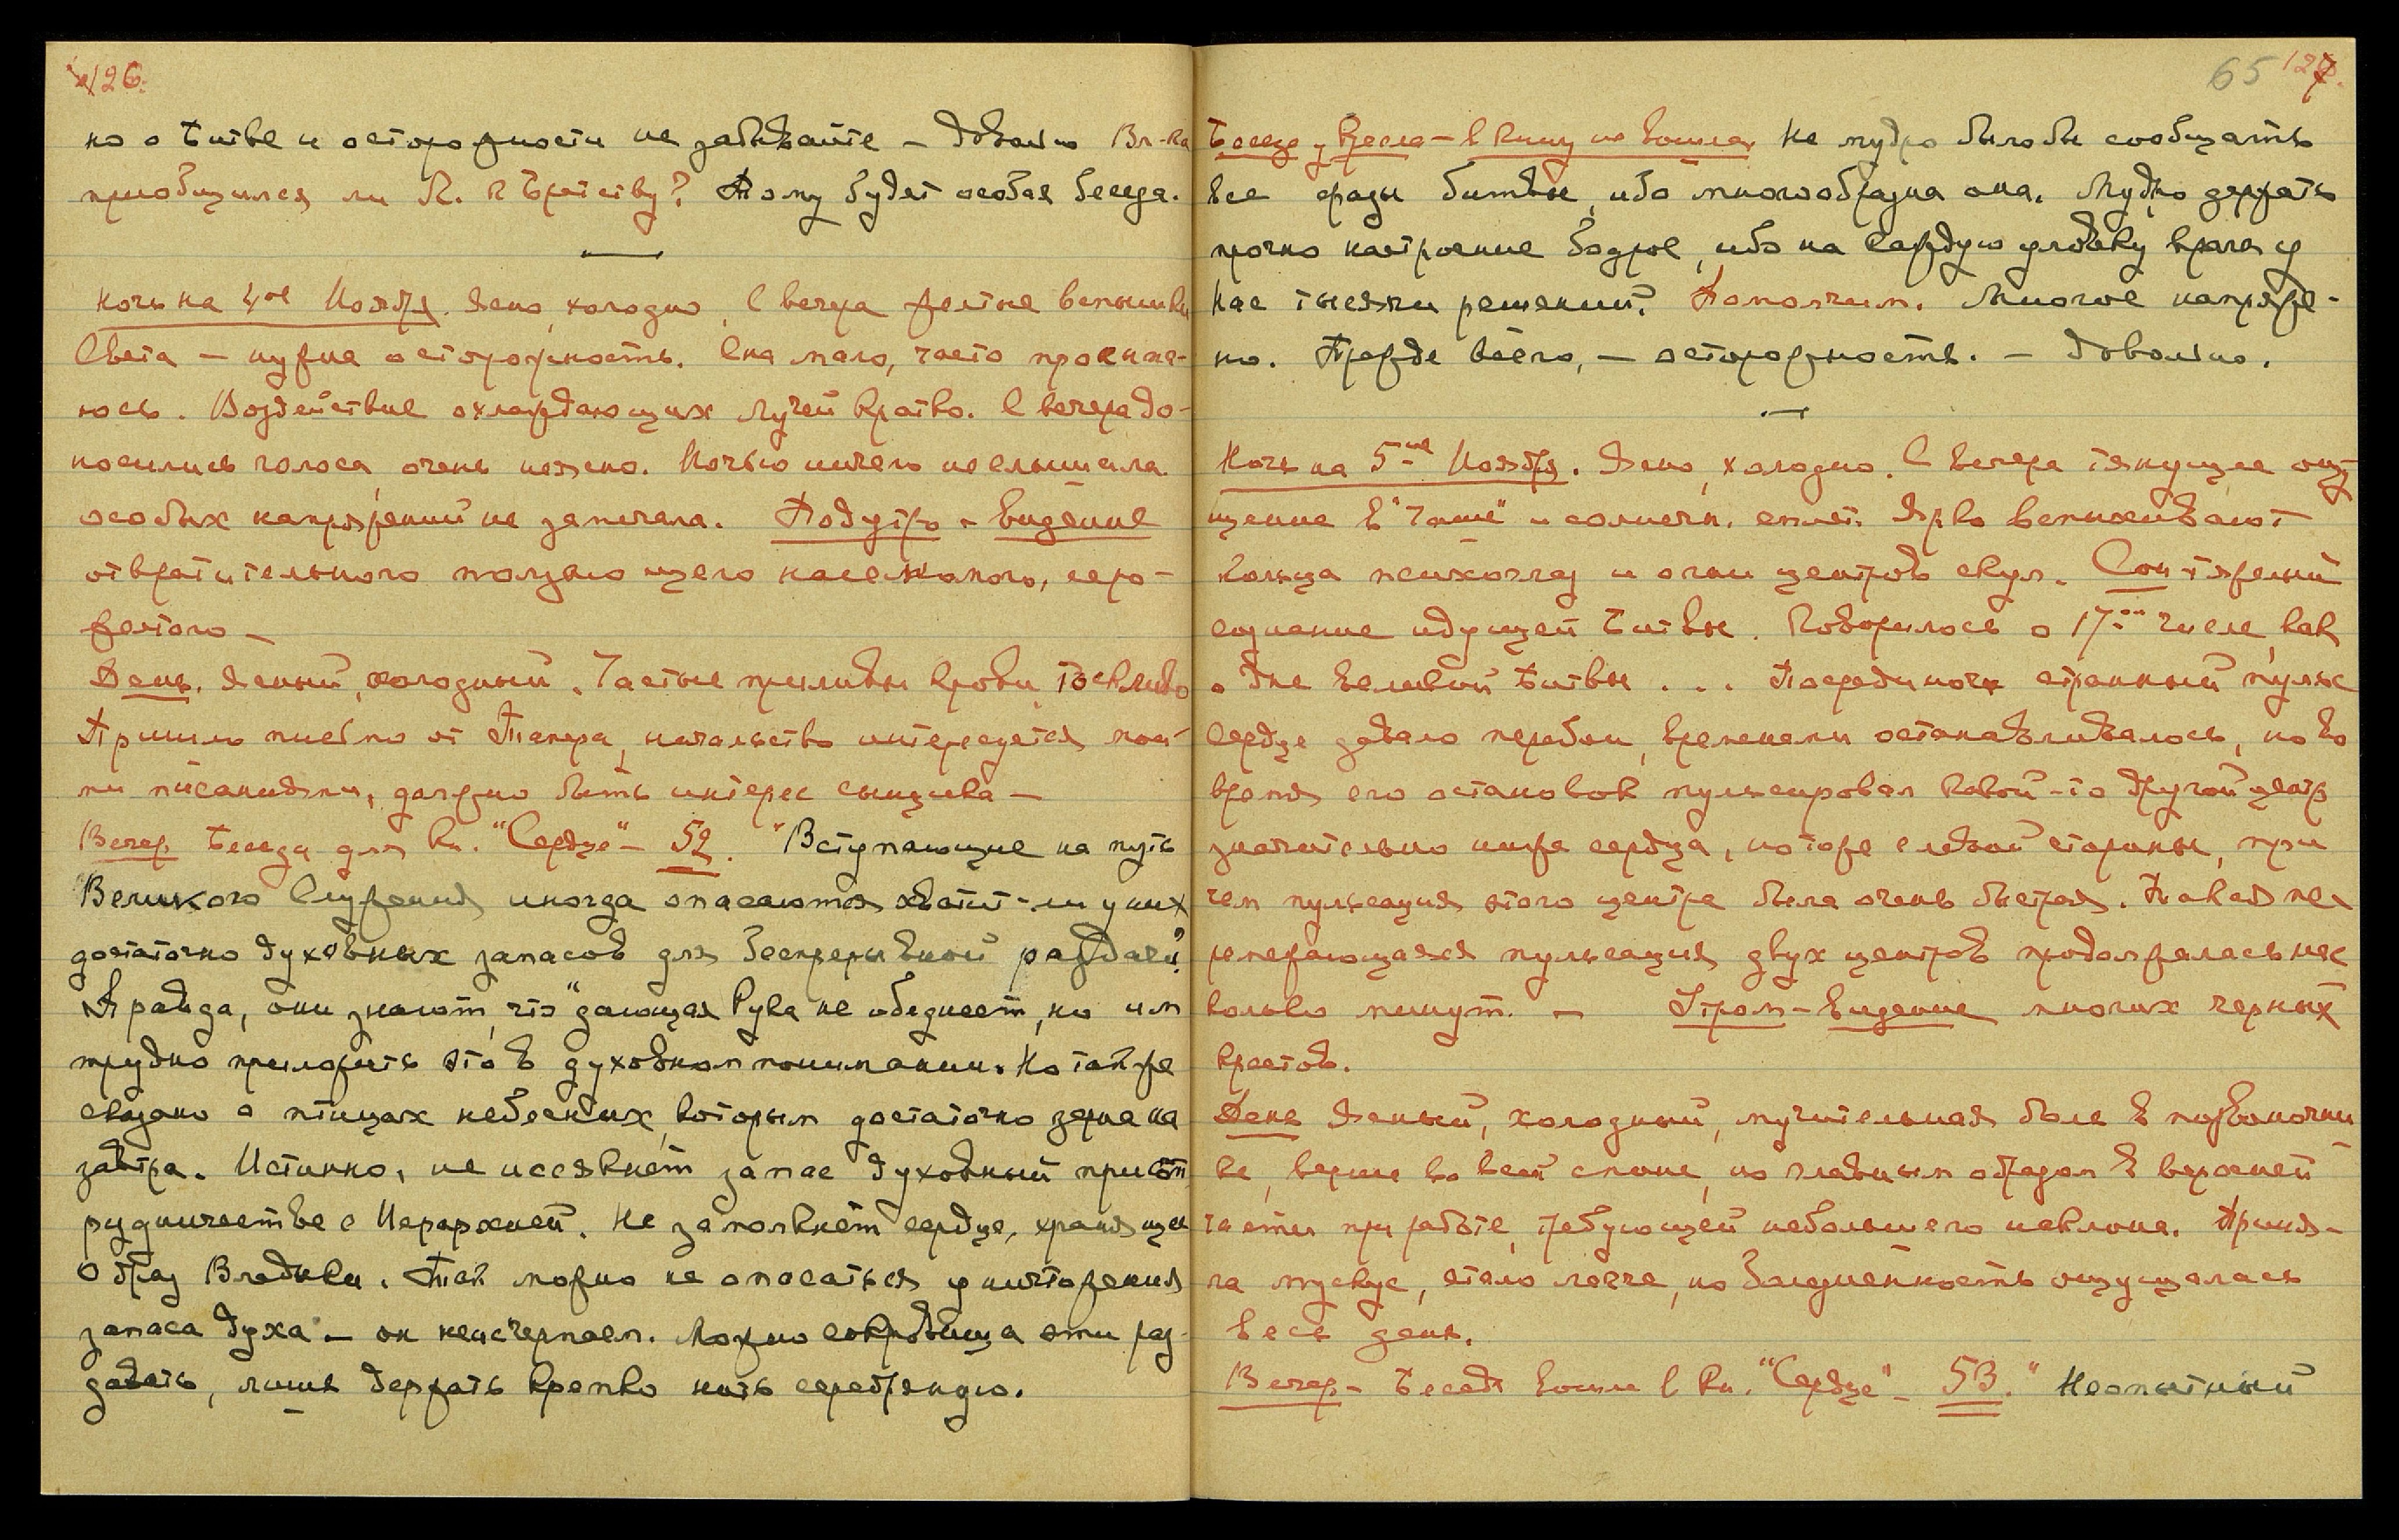 126.
но о Битве и осторожности не забывайте — Довольно Вл-ка
приобщился ли К. к Братству? Тому будет особая беседа.
Ночь на 4ое Ноября. Ясно, холодно, С вечера желтые вспышки
Света — нужна осторожность. Сна мало, часто просыпа-
лась. Воздействие охлаждающих лучей кратко. С вечера до-
носились голоса, очень неясно. Ночью ничего не слышала.
особых напряжений не замечала. Под утро – Видение
отвратительного ползающего насекомого, серо-
желтого —
День. Ясный, холодный. Частые приливы крови, тоскливо
Пришло письмо от Тампи, начальство интересуется мои-
ми писаниями, должно быть интерес сыщика —
Вечер Беседа для кн. "Сердце" – 52. "Вступающие на путь
Великого Служения иногда опасаются хватит-ли у них
достаточно духовных запасов для беспрерывной раздачи?
Правда, они знают, что "дающая Рука не обеднеет, но им
трудно приложить это в духовном понимании. Но так же
сказано о птицах небесных, которым достаточно зерна на
завтра. Истинно, не иссякнет запас духовный при сот-
рудничестве с Иерархией. Не замолкнет сердце, хранящее
Образ Владыки. Так можно не опасаться уничтожения
запаса духа — он неисчерпаем. Можно сокровища эти раз-
давать, лишь держать крепко нить серебряную.
65 127.
Беседа у Кресла – в книгу не вошла. Не мудро было бы сообщать
все фазы битвы, ибо многообразна она. Мудро держать
прочно настроение бодрое, ибо на каждую уловку врага у
Нас тысячи решений. Помолчим. Многое напряже-
но. Прежде всего, — осторожность. — Довольно.
Ночь на 5ое Ноября. Ясно, холодно. С вечера тянущее ощу-
щение в "Чаше" и солнечн. сплет. Ярко вспыхивают
кольца психоглаз и огни центров скул. Сон тяжелый
сознание идущей Битвы. Говорилось о 17ом числе, как
о дне великой Битвы... Посреди ночи странный пульс
Сердце давало перебои, временами останавливалось, но во
время его остановок пульсировал какой-то другой центр
значительно ниже сердца, но тоже с левой стороны, при
чем пульсация этого центра была очень быстрая. Такая пе-
ремежающаяся пульсация двух центров продолжалась нес-
колько минут. — Утром – Видение многих черных
крестов.
День Ясный, холодный, мучительная боль в позвоночни-
ке, вернее во всей спине, но главным образом в верхней
части при работе, требующей небольшого наклона. Приня-
ла мускус, стало легче, но болезненность ощущалась
весь день.
Вечер – Беседа вошла в кн. "Сердце" – 53. "Неопытный